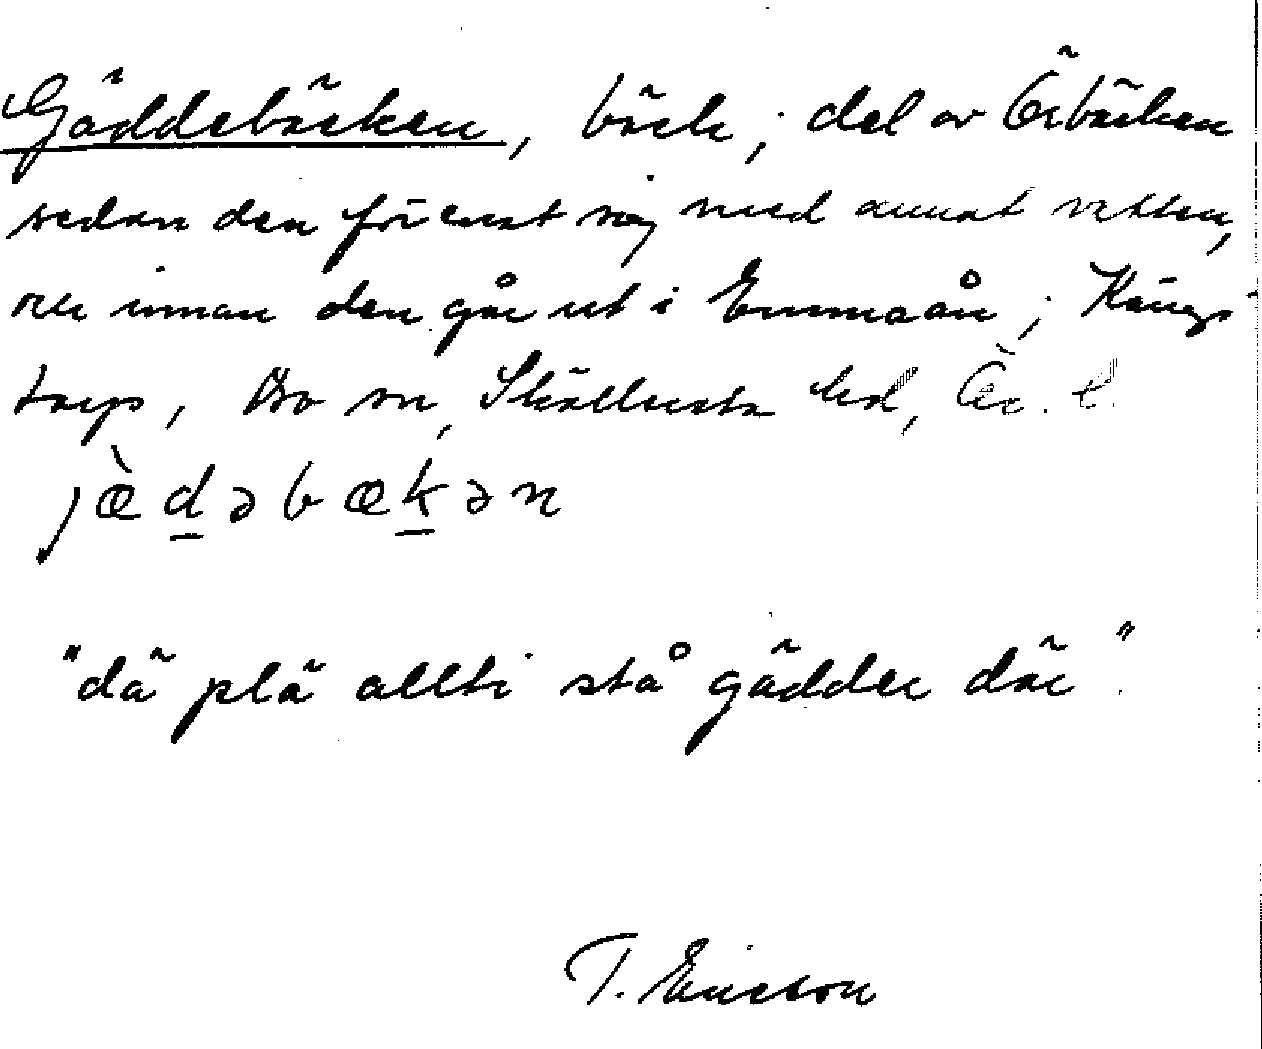 Gäddebäcken, bäck; del av Örbäcken
sedan den förenat sig med annat vatten,
innan den går ut i Emmaån; Kängs-
torp, Bo sn, Sköllersta hd, Ör. l.
jæ̀d̲əbæk̲ən
"dä plä allti stå gädder där".
T. Ericson